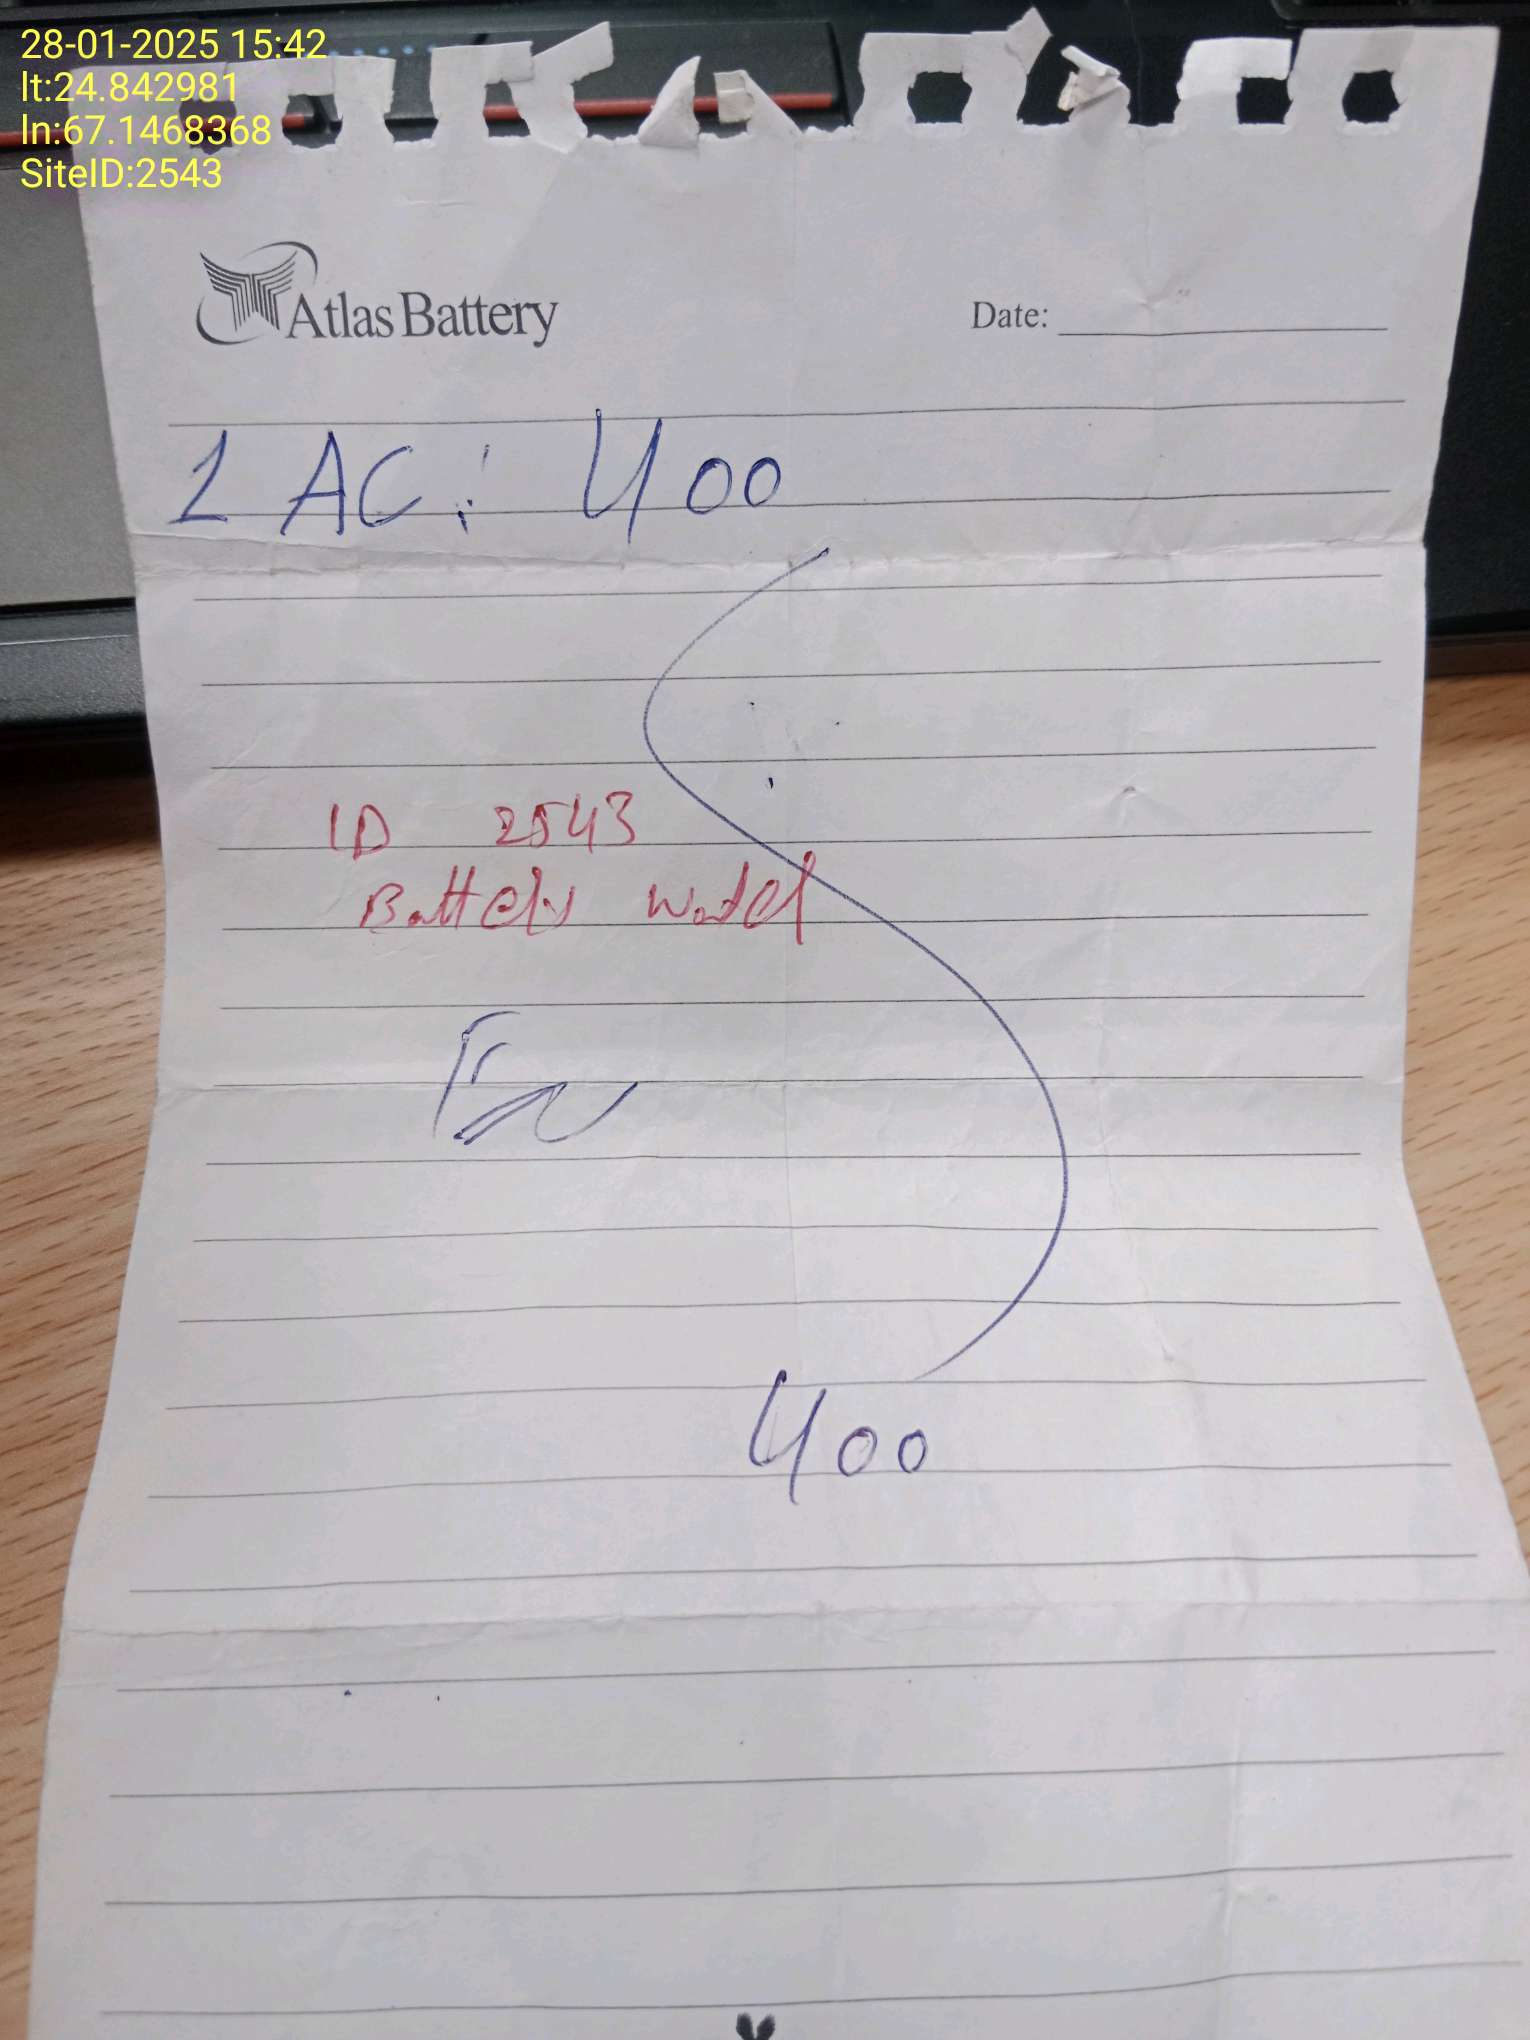 28-01-2025 15:42
lt:24.842981
ln:67.1468368
SiteID:2543
Atlas Battery
Date:
1 AC: 400
ID 2543
Battery
400